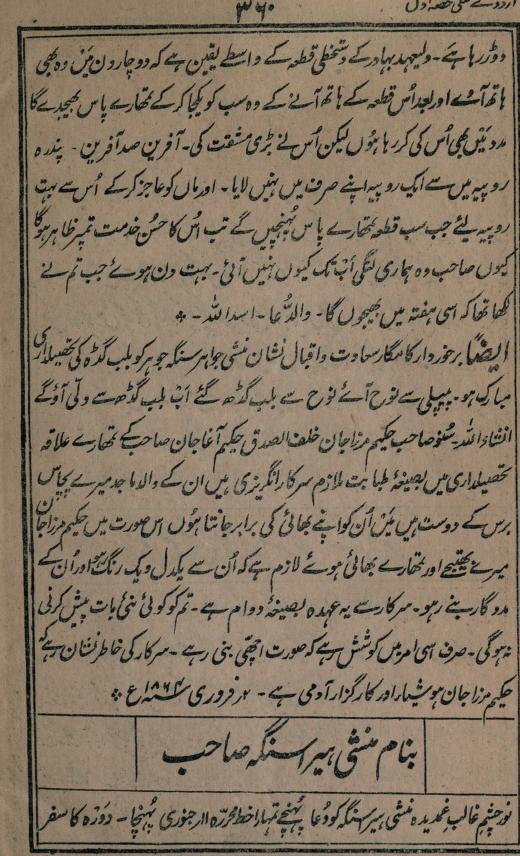 ۳۶۰
اردوے معلی حصہ اول
دوڑ رہا ہے۔ ولیعہد بہادر کے دستخطی قطعہ کے واسطے یقین ہے کہ دو چار دن میں وہ بھی
ہاتھ آئے اور بعد اُس قطعہ کے ہاتھ آنے کے وہ سب کو یکجا کر کے تمھارے پاس بھیجدے گا
مدد میں بھی اُس کی کر رہا ہوں لیکن اُس نے بڑی مشقت کی۔ آفرین صد آفرین۔ پندرہ
روپیہ میں سے ایک روپیہ اپنے صرف میں نہیں لایا۔ اور ماں کو عاجز کر کے اُس سے بہت
روپیہ لئے جب سب قطعہ تمھارے پاس پہنچیں گے تب اُس کا حسن خدمت تمپر ظاہر ہوگا
کیوں صاحب وہ ہماری لنگی اَبْ تک کیوں نہیں آئی۔ بہت دن ہوئے جب تم نے
لکھا تھا کہ اسی ہفتہ میں بھیجوں گا۔ والدُّعا۔ اسد اللہ۔ ٭
ایضاً برخوردار کامگار سعادت و اقبال نشان منشی جواہر سنگہ جوہر کو بلب گڈہ کی تحصیلداری
مبارک ہو۔ پیپلی سے نوح آئے نوح سے بلب گڈھ گئے اَبْ بلب گڈھ سے دلّی آؤ گے
انشاء اللہ۔ سنو صاحب حکیم مرزا جان خلف الصدق حکیم آغا جان صاحب کے تمھارے علاقہ
تحصیلداری میں بصیغۂ طبابت ملازم سرکار انگریزی ہیں ان کے والد ماجد میرے پچاس
برس کے دوست ہیں میں اُن کو اپنے بھائی کی برابر جانتا ہوں اس صورت میں حکیم مرزا جان
میرے بھتیجے اور تمھارے بھائی ہوئے لازم ہے کہ اُن سے یکدل و یک رنگ رہو اور اُن کے
مددگار بنے رہو۔ سرکار سے یہ عہدہ بصیغۂ دوام ہے۔ تم کو کوئی نئی بات پیش کرنی
نہ ہوگی۔ صرف اسی امر میں کوشش رہے کہ صورت اچھی بنی رہے۔ سرکار کی خاطر نشان رہے کہ
حکیم مرزا جان ہوشیار اور کارگزار آدمی ہے۔ ۲؍ فروری ۱۸۶۴ع ٭
بنام منشی ہیرا سنگہ صاحب
نور چشم غالب غمدیدہ منشی ہیرا سنگہ کو دعا پہنچے تمہارا خط محررہ ۱۱؍ جنوری پہنچا۔ دَورَہ کا سفر